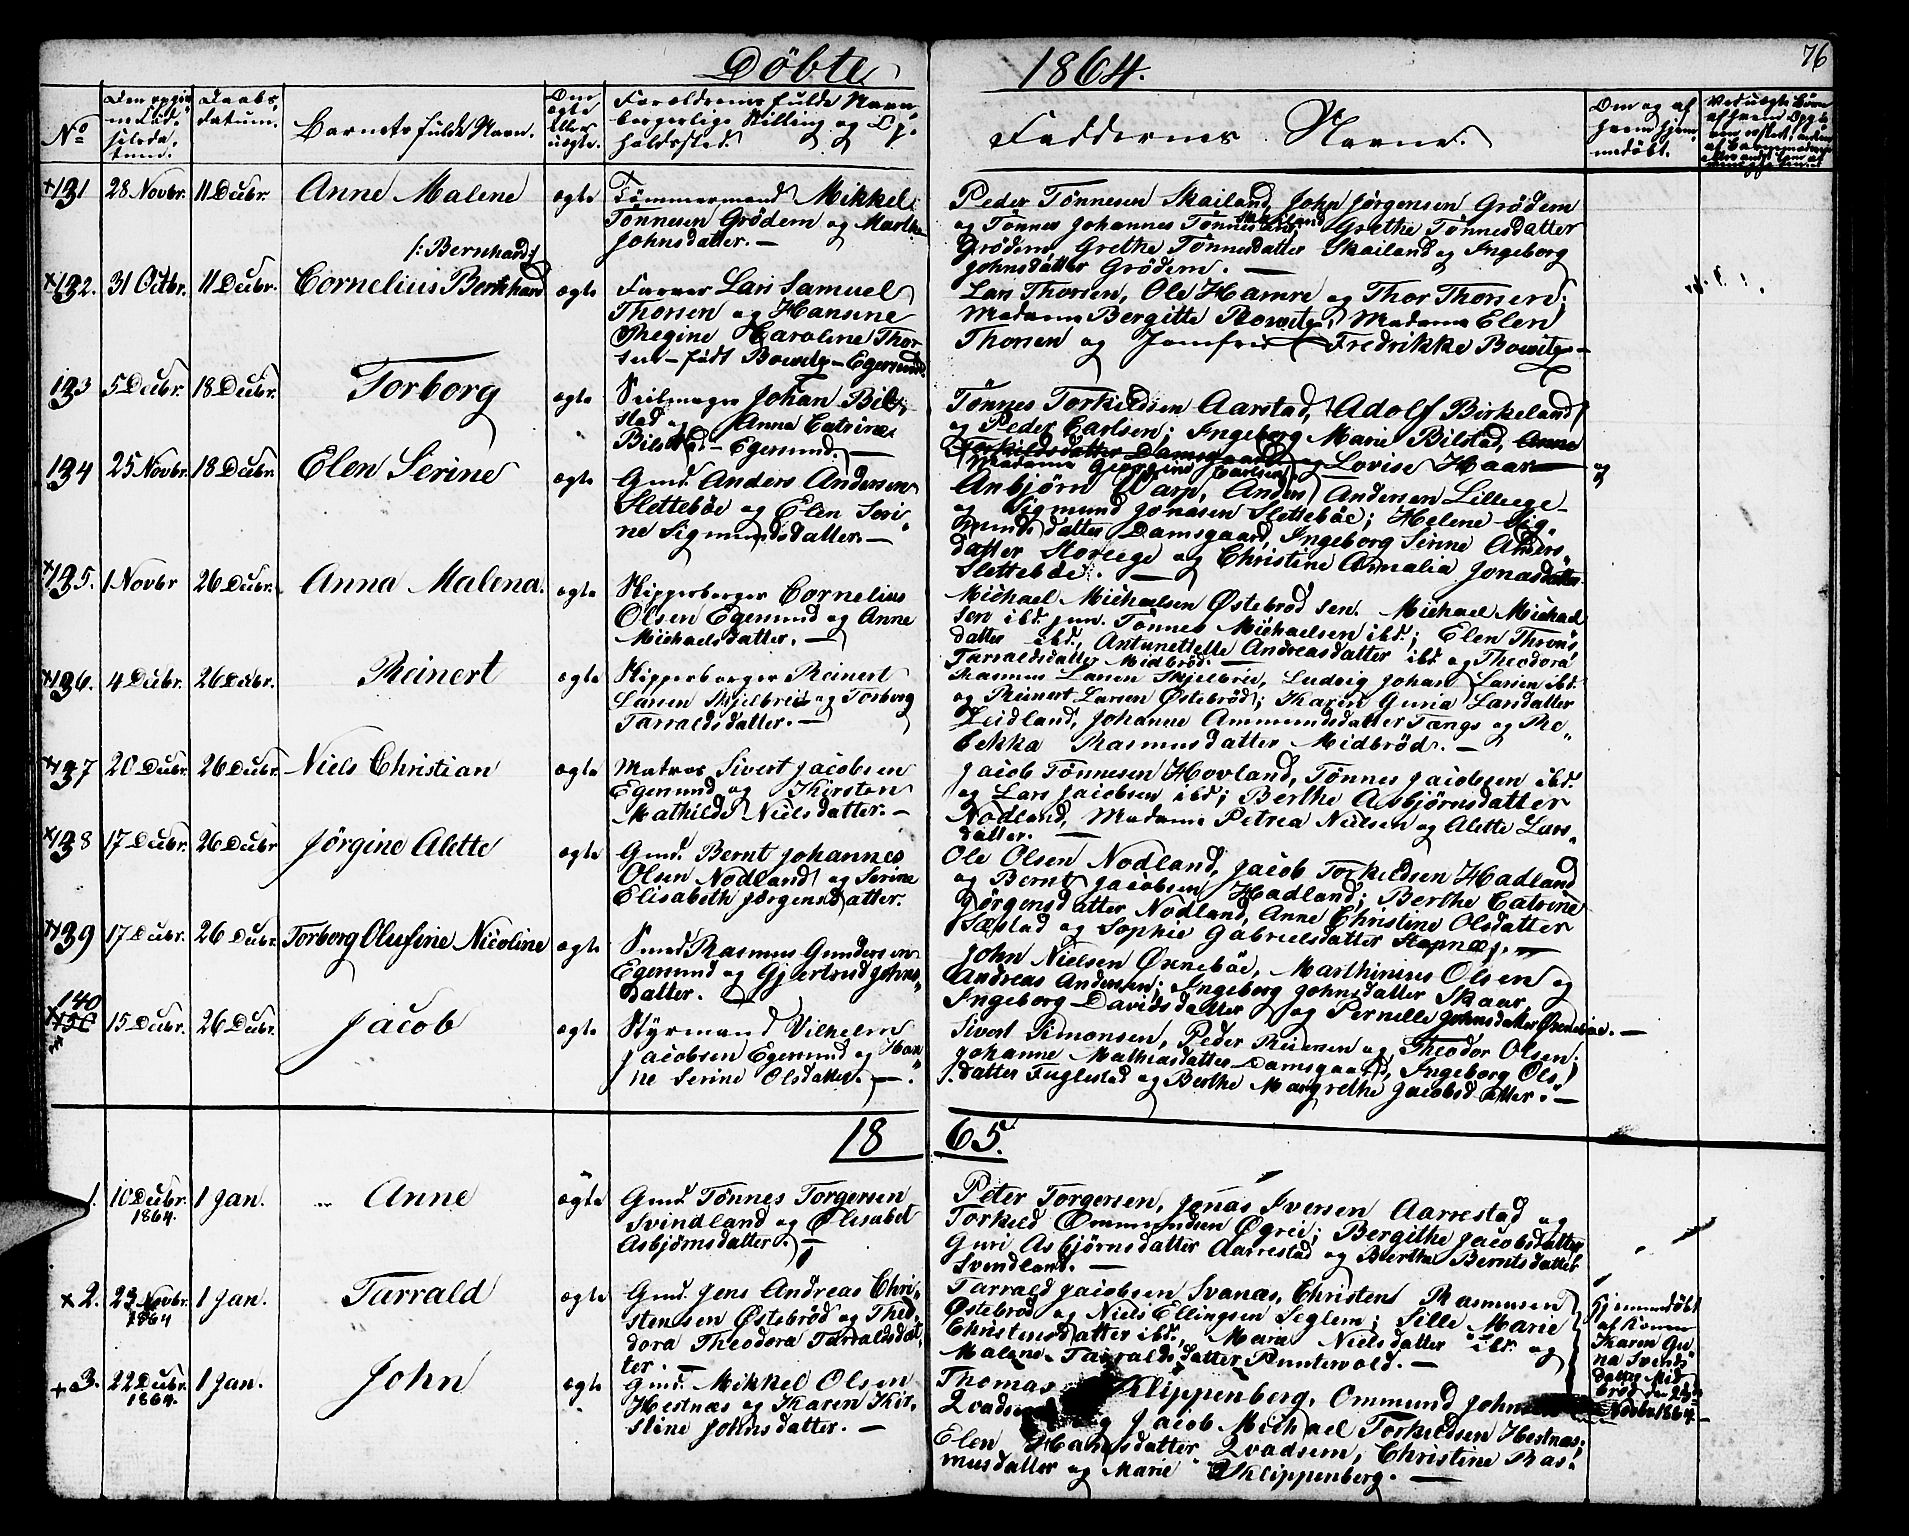 Döbte
1864.
76
No
Daabs-
datum.
Barnets fulde Navn.
Om
ægte
eller
uægte.
Forældrenes fulde Navn,
borgerlige Stilling og Op-
holdssted.
Faddernes Navne.
Om og af
hvem hjem-
medöbt.
+131
28 Novbr.
11 Decbr.
Anne Malene
ægte
Tömmermand Mikkel
Tönnesen Grödem og Marthe
Johnsdatter. —
Peder Tönnesen Skailand, John Jörgensen Grödem
og Tönnes Johannes Tönnesen Skailand; Grethe Tönnesdatter
Grödem, Grethe Tönnesdatter Skailand og Ingeborg
Johnsdatter Grödem. —
/: Bernhard :/
+132.
31 Octbr.
11 Decbr.
Cornelius Bernhard
ægte
Farver Lars Samuel
Thorsen og Hansine
Regine Haroline Thor-
sen – födt Bowitz – Egersund
Lars Thorsen, Ole Hamre og Thor Thorsen;
Madame Bergitte Bowitz, Madame Elen
Thorsen og Jomfru Fredrikke Bowitz —
133
5 Decbr.
18 Decbr.
Torborg
ægte
Seilmager Johan Bil-
stad og Anna Catrine
Bilstad – Egersund. —
Tönnes Torkildsen Aarstad, Adolf Birkeland
og Peder Carlsen; Ingeborg Marie Bilstad, Anne
Torkildsdatter Damsgaard og Lovise Haar — og
Madame Georgine Carlsen
134
25 Novbr.
18 Decbr.
Elen Serine
ægte
Gmd. Anders Andersen
Sletteböe og Elen Seri-
ne Sigmundsdatter. —
Anbjörn Warp, Anders Andersen Lilleege
og Sigmund Jonasen Sletteböe; Helene Sig-
mundsdatter Damsgaard, Ingeborg Serine Anders-
datter Storeege og Christine Amalia Jonasdatter
Sletteböe. —
+135.
1 Novbr
26 Decbr.
Anna Malena.
ægte
Skipperborger Cornelius
Olsen Egersund og Anne
Michaelsdatter. —
Michael Michaelsen Östebröd sen. Michael Michael-
sen ibd. jun. Tönnes Michaelsen ibd.; Elen Throns-
datter ibd., Antunettelle Andreasdatter ibd. og Theodora
Tarraldsdatter Midbröd. —
+136.
4 Decbr.
26 Decbr.
Reinert
ægte
Skipperborger Reinert
Larsen Skjelbrei og Torborg
Tarraldsdatter. —
Rasmus Larsen Skjelbrei, Ludvig Johan Larsen ibd.
og Reinert Larsen Östebröd; Karen Guria Larsdatter
Leidland, Johanne Ammundsdatter Tængs og Re-
bekka Rasmusdatter Midbröd. —
+137
20 Decbr.
26 Decbr.
Niels Christian
ægte
Matros Sivert Jacobsen
Egersund og Kirsten
Mathilde Nielsdatter. —
Jacob Tönnesen Hovland, Tönnes Jacobsen ibd.
og Lars Jacobsen ibd; Berthe Asbjörnsdatter
Nodland, Madame Petrea Nielsen og Alette Lars-
datter. —
+138
17 Decbr.
26 Decbr
Jörgine Alette
ægte
Gmd. Bernt Johannes
Olsen Nodland og Serine
Elisabeth Jörgensdatter.
Ole Olsen Nodland, Jacob Torkildsen Hadland
og Bernt Jacobsen Hadland; Berthe Catrine
Jörgensdatter Nodland, Anne Christine Olsdatter
Sæstad og Sophie Gabrielsdatter Stapnæs. —
+139
17 Decbr.
26 Decbr.
Torborg Olufine Nicoline
ægte
Smed Rasmus Gundersen
Egersund og Gjertrud Johns-
datter. —
John Nielsen Örneböe, Marthinius Olsen og
Andreas Andersen; Ingeborg Johnsdatter Skaar,
Ingeborg Davidsdatter og Pernille Johnsdatter Örneböe. —
140
+150
15 Decbr.
26 Decbr.
Jacob
ægte
Styrmand Vilhelm
Jacobsen Egersund og Han-
ne Serine Olsdatter. —
Sivert Simonsen, Peder Reiersen og Theodor Olsen;
Johanne Mathiasdatter Damsgaard, Ingeborg Ols-
datter Fuglestad og Berthe Margrethe Jacobsdatter. —
1865.
1.
10 Decbr.
1864.
1 Jan.
Anne
ægte
Gmd. Tönnes Torgersen
Svindland og Elisabet
Asbjörnsdatter. —
Peter Torgersen, Jonas Iversen Aarrestad og
Torkild Ommundsen Ögrei; Bergithe Jacobsdatter,
Guri Asbjörnsdatter Aarrestad og Berthe Berntsdatter
Svindland. —
+2.
23 Novbr.
1864
1 Jan.
Tarrald
ægte
Gmd. Jens Andreas Chri-
stensen Östebröd og Theo-
dora Theodora Tarraldsdat-
ter. —
Tarrald Jacobsen Svanæs, Christen Rasmusen
Östebröd og Niels Ellingsen Seglem; Sille Marie
Christensdatter ibd., Marie Nielsdatter ibd. og
Malene Tarraldsdatter Puntervold. —
Hjemmedöbt
af Konen
Karen Gu-
na Svends-
datter Mid-
bröd den 23de
Novbr 1864.
+3.
22 Decbr.
1864.
1 Jan.
John
ægte
Gmd. Mikkel Olsen
Hestnæs og Karen Kir-
stine Johnsdatter. —
Thomas Klippenberg, Ommund
og Jacob Michael Torkildsen Hestnæs;
Elen Hansdatter Qvadsem, Christine Ras-
musdatter og Marie Klippenberg. —